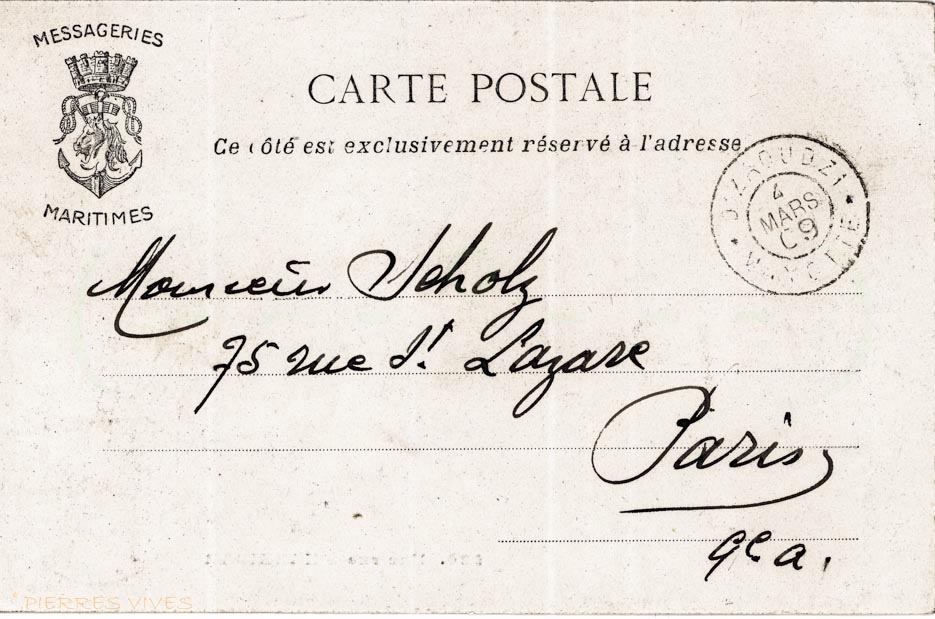 MESSAGERIES
MARITIMES
CARTE POSTALE
Ce côté est exclusivement réservé à l'adresse
DZAOUDZI
4
MARS
09
MAYOTTE
Monsieur Scholz
75 rue St. Lazare
Paris
9e a.
PIERRES VIVES